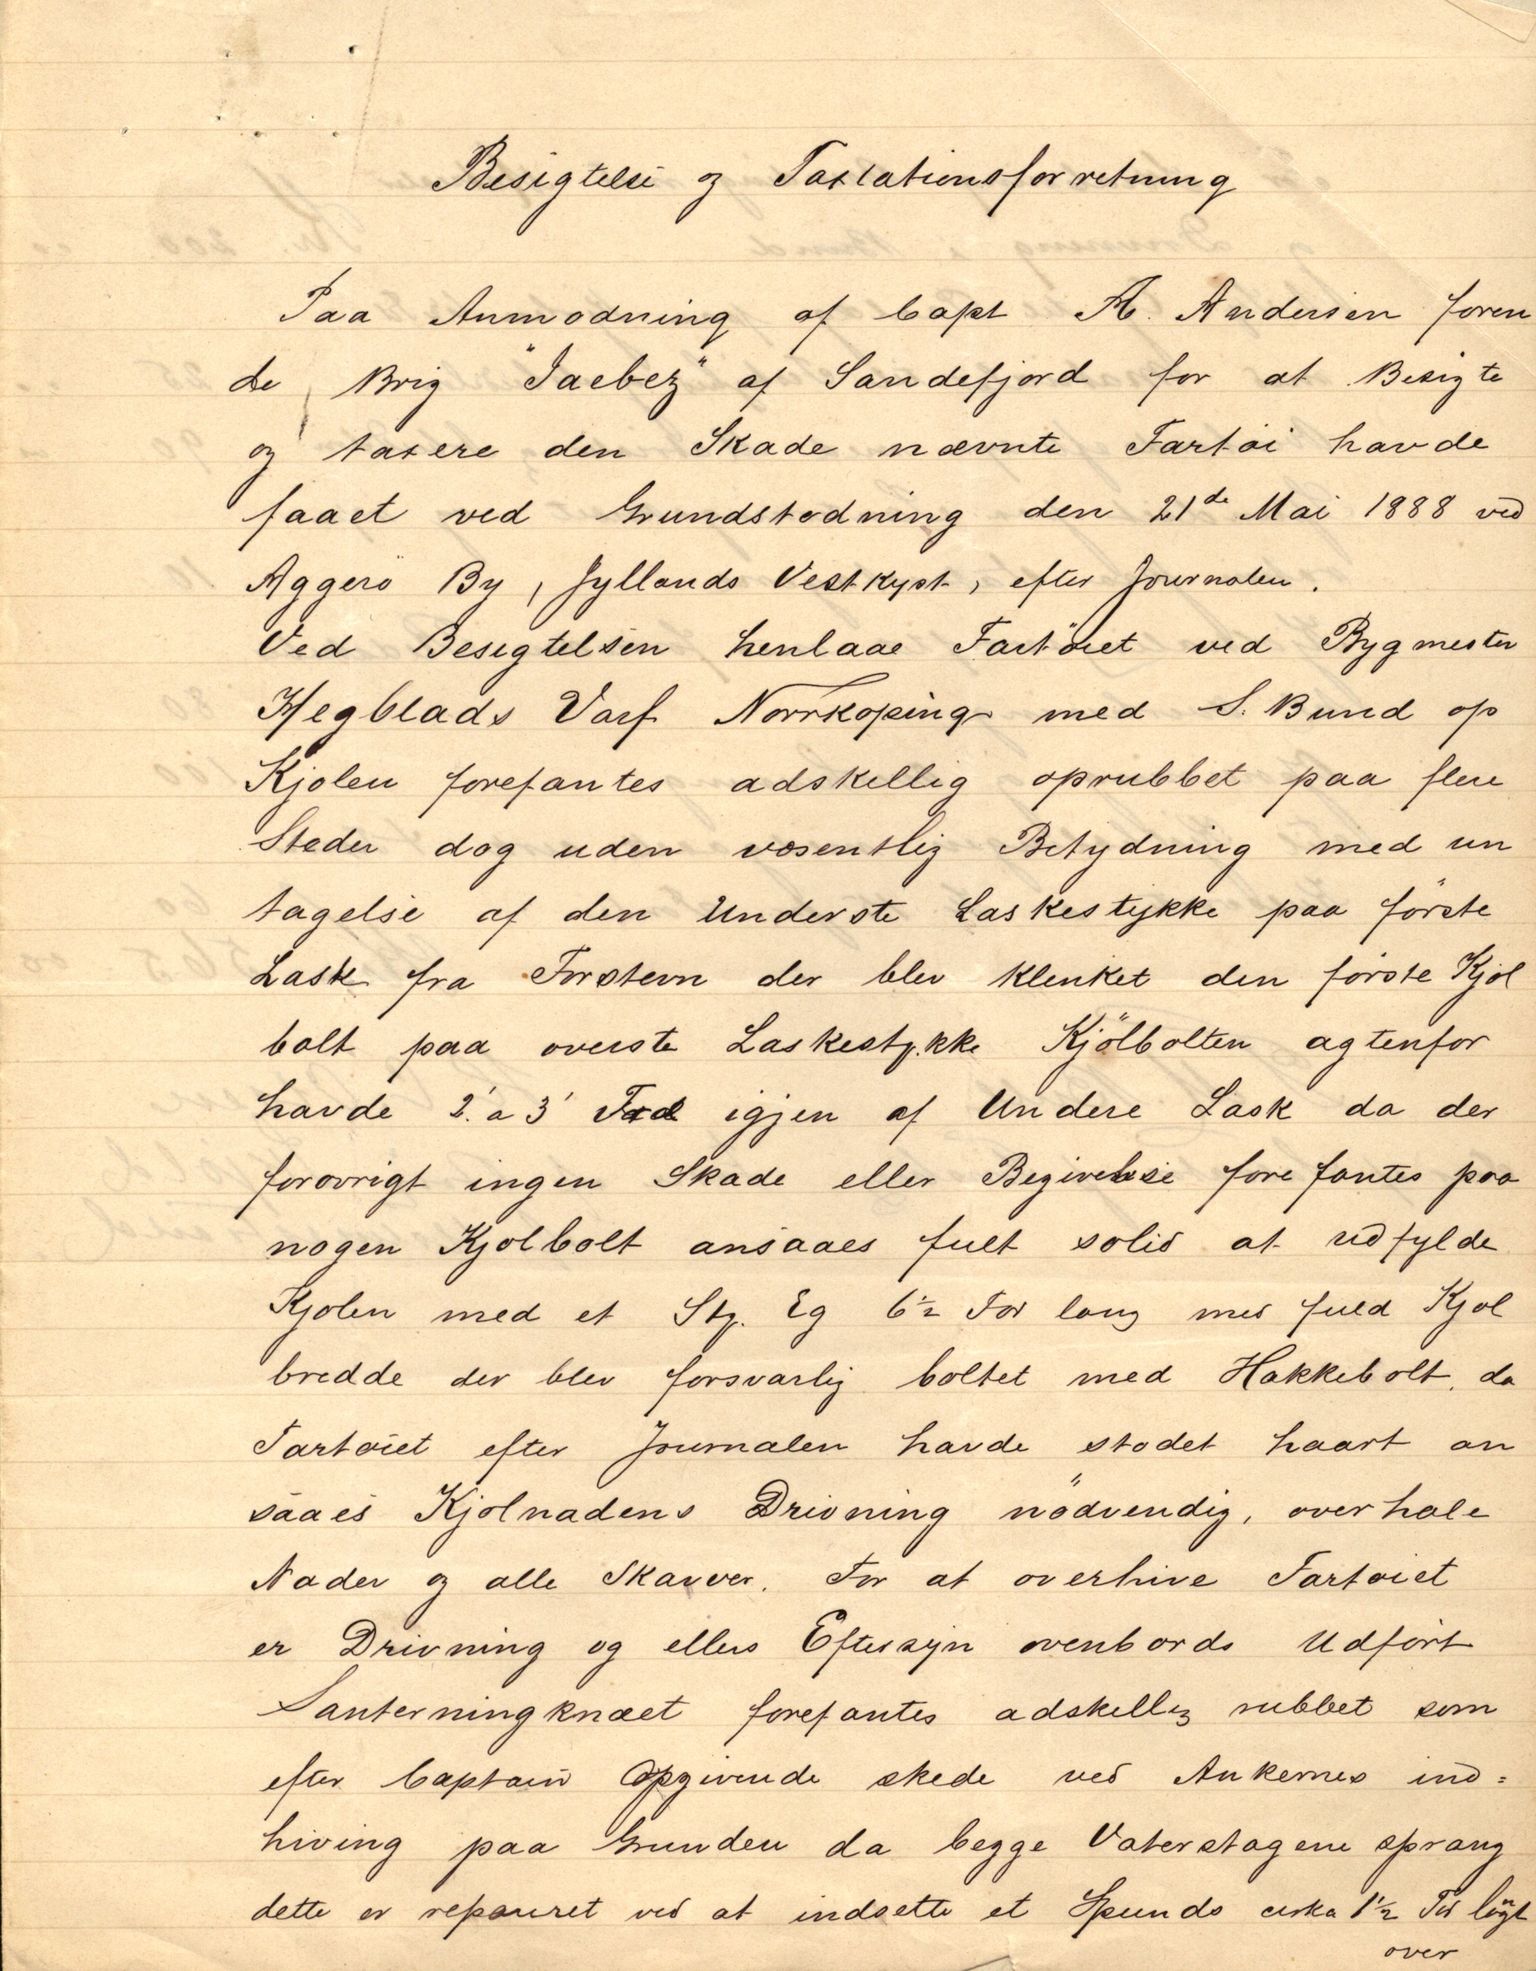 Besigtelse og Taxtationsforretning
Paa Anmodning af Capt A. Andersen foren
de Brig "Jaebez" af Sandefjord for at Besigte
og taxere den Skade nævnte Fartøi havde
faaet ved Grundstødning den 21de Mai 1888 ved
Aggerö By, Jyllands Vestkyst, efter Journalen.
Ved Besigtelsen henlaae Fartöiet ved Bygmester
Hegblads Varf Norrkoping med S. Bund op
Kjolen forefantes adskellig oprubbet paa flere
Steder dog uden vosentlig Betydning med un
tagelse af den Underste Laskestykke paa förste
Lask fra Forstevn der blev klenket den förste Kjol
bolt paa overste Laskestykke Kjölbolten agtenfor
havde 2' a 3' Fod igjen af Undere Lask da der
forovrigt ingen Skade eller Begivelse fore fantes paa
nogen Kjolbolt ansaaes fult solid at udfylde
Kjolen med et Sty. Eg 6½ Fod long med fuld Kjol
bredde der blev forsvarlig boltet med Hakkebolt, da
Fartøiet efter Journalen havde stodet haart an
saaes Kjolnadens Drivning nödvendig, overhale
Nader og alle Skarver. For at overhive Fartøiet
er Drivning og ellers Eftersyn ovenbords Udført
Santerningknæet forefantes adskellig rubbet som
efter Captain Opgivende skede ved Ankernes ind=
hiving paa Grunden da begge Vaterstagene sprang
dette er repareret ved at indsette et Spunds cirka 1½ Fod lögt
over